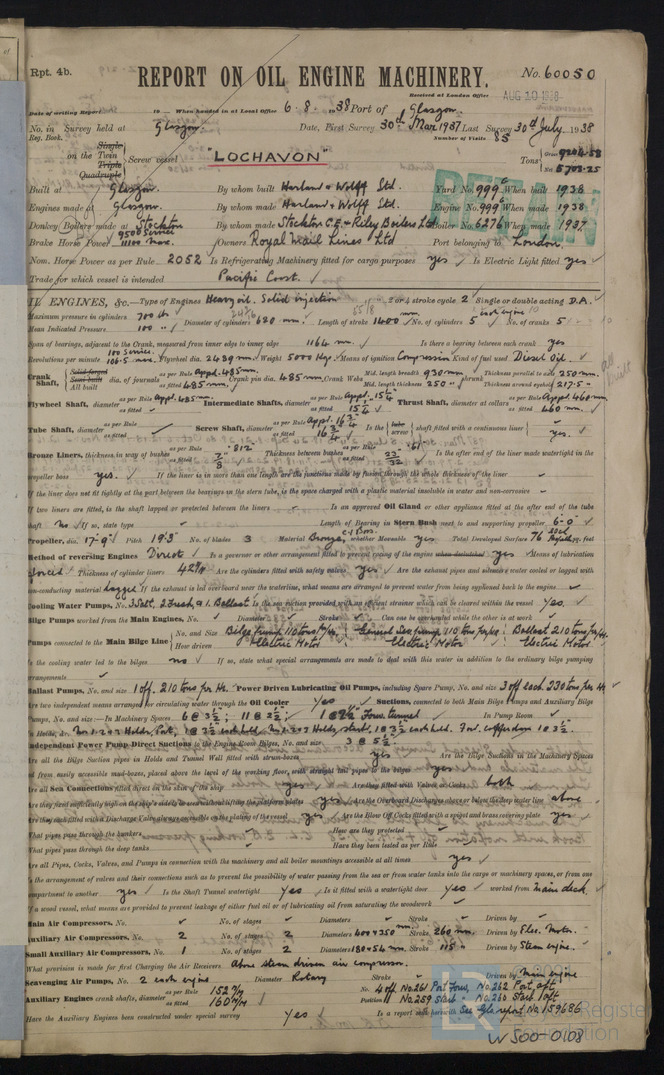 Rpt. 4b.
REPORT ON OIL ENGINE MACHINERY.
No. 60050
Received at London Office
AUG 10 1938
Date of writing Report 19 When handed in at Local Office 6.8.1938 Port of Glasgow.
No. in Survey held at Glasgow. Date, First Survey 30th Mar 1937 Last Survey 30th July, 1938
Reg. Book. Number of Visits 85
Single
on the Twin Screw vessel "LOCHAVON" Tons Gross 9204.58
Triple
Quadruple Net 5703.25
Built at Glasgow. By whom built Harland & Wolff Ltd. Yard No. 999G When built 1938
Engines made at Glasgow. By whom made Harland & Wolff Ltd. Engine No. 999G When made 1938
Donkey Boilers made at Stockton By whom made Stockton C.E. & Riley Boilers Ltd Boiler No. 6276 When made 1937
Brake Horse Power 9500 Service 11100 Max. Owners Royal Mail Lines Ltd Port belonging to London.
Nom. Horse Power as per Rule 2052 Is Refrigerating Machinery fitted for cargo purposes yes Is Electric Light fitted yes
Trade for which vessel is intended Pacific Coast.
OIL ENGINES, &c.—Type of Engines Heavy oil. Solid injection 2 or 4 stroke cycle 2 Single or double acting D.A.
Maximum pressure in cylinders 700 lbs Diameter of cylinders 620 mm. Length of stroke 1400 mm No. of cylinders 5 each engine No. of cranks 5
Mean Indicated Pressure 100 "
Span of bearings, adjacent to the Crank, measured from inner edge to inner edge 1164 mm. Is there a bearing between each crank yes
Revolutions per minute 100 Service. 106.5 max. Flywheel dia. 2489 mm Weight 5000 Kgs. Means of ignition Compression Kind of fuel used Diesel Oil.
Crank Shaft, Solid forged Semi built All built dia. of journals as per Rule Appd. 485mm as fitted 485mm. Crank pin dia. 485mm. Crank Webs Mid. length breadth 930mm Thickness parallel to axis 250mm.
Mid. length thickness 250 " shrunk Thickness around eyehole 217.5 "
all built
Flywheel Shaft, diameter as per Rule Appd. 485mm. as fitted Intermediate Shafts, diameter as per Rule Appd. 15¼ as fitted 15¼ Thrust Shaft, diameter at collars as per Rule Appd. 460mm as fitted 460 mm.
Tube Shaft, diameter as per Rule as fitted Screw Shaft, diameter as per Rule Appd. 16¾ as fitted 16¾ Is the tube screw shaft fitted with a continuous liner yes.
Bronze Liners, thickness in way of bushes as per Rule .812 as fitted 7/8 Thickness between bushes as per Rule .61 as fitted 22/32 Is the after end of the liner made watertight in the
propeller boss yes. If the liner is in more than one length are the junctions made by fusion through the whole thickness of the liner
If the liner does not fit tightly at the part between the bearings in the stern tube, is the space charged with a plastic material insoluble in water and non-corrosive
If two liners are fitted, is the shaft lapped or protected between the liners Is an approved Oil Gland or other appliance fitted at the after end of the tube
shaft no If so, state type Length of Bearing in Stern Bush next to and supporting propeller 6'-0"
Propeller, dia. 17'-9" Pitch 19'3" No. of blades 3 Material Bronze, whether Moveable yes Total Developed Surface 76 sq. feet
Method of reversing Engines Direct Is a governor or other arrangement fitted to prevent racing of the engine when declutched yes Means of lubrication
forced Thickness of cylinder liners 42 m/m Are the cylinders fitted with safety valves yes Are the exhaust pipes and silencers water cooled or lagged with
non-conducting material lagged If the exhaust is led overboard near the waterline, what means are arranged to prevent water from being syphoned back to the engine
Cooling Water Pumps, No. 3 Salt, 2 Fresh, & 1. Ballast Is the sea suction provided with an efficient strainer which can be cleared within the vessel yes.
Bilge Pumps worked from the Main Engines, No. Diameter Stroke Can one be overhauled while the other is at work
Pumps connected to the Main Bilge Line No. and Size Bilge pump 110 tons/hr; General Ser. pump 110 tons per hr; Ballast 210 tons/hr.
How driven Electric Motor Electric Motor Electric Motor
Is the cooling water led to the bilges no If so, state what special arrangements are made to deal with this water in addition to the ordinary bilge pumping
arrangements
Ballast Pumps, No. and size 1 off. 210 tons per Hr. Power Driven Lubricating Oil Pumps, including Spare Pump, No. and size 3 off each 230 tons per Hr
Are two independent means arranged for circulating water through the Oil Cooler yes Suctions, connected to both Main Bilge Pumps and Auxiliary Bilge
Pumps, No. and size—In Machinery Spaces 6 @ 3½"; 11 @ 2½"; 1 @ 2½" Fow. tunnel In Pump Room
In Holds, &c.
Independent Power Pump Direct Suctions to the Engine Room Bilges, No. and size 3 @ 5½".
Are all the Bilge Suction pipes in Holds and Tunnel Well fitted with strum-boxes yes Are the Bilge Suctions in the Machinery Spaces
led from easily accessible mud-boxes, placed above the level of the working floor, with straight tail pipes to the bilges yes
Are all Sea Connections fitted direct on the skin of the ship yes Are they fitted with Valves or Cocks both
Are they fixed sufficiently high on the ship's side to be seen without lifting the platform plates yes Are the Overboard Discharges above or below the deep water line above
Are they each fitted with a Discharge Valve always accessible on the plating of the vessel yes Are the Blow Off Cocks fitted with a spigot and brass covering plate yes
What pipes pass through the bunkers How are they protected
What pipes pass through the deep tanks Have they been tested as per Rule
Are all Pipes, Cocks, Valves, and Pumps in connection with the machinery and all boiler mountings accessible at all times yes
Is the arrangement of valves and their connections such as to prevent the possibility of water passing from the sea or from water tanks into the cargo or machinery spaces, or from one
compartment to another yes Is the Shaft Tunnel watertight yes Is it fitted with a watertight door yes worked from main deck.
If a wood vessel, what means are provided to prevent leakage of either fuel oil or of lubricating oil from saturating the woodwork
Main Air Compressors, No. No. of stages Diameters Stroke Driven by
Auxiliary Air Compressors, No. 2 No. of stages 2 Diameters 400 & 350 mm Stroke 260 mm. Driven by Elec. Motor.
Small Auxiliary Air Compressors, No. 1 No. of stages 2 Diameters 130 & 54 mm Stroke 115 " Driven by Steam engine.
What provision is made for first Charging the Air Receivers Above steam driven air compressor.
Scavenging Air Pumps, No. 2 each engine Diameter Rotary Stroke Driven by Main engine
Auxiliary Engines crank shafts, diameter as per Rule 152 m/m as fitted 160 m/m No. 4 off No. 261 Port Fow., No. 262 Port aft
Position No 259 Starb. No. 260 Starb. aft
Have the Auxiliary Engines been constructed under special survey yes Is a report sent herewith See Gls report No 159686
LR Lloyd's Register Foundation
W500-0108